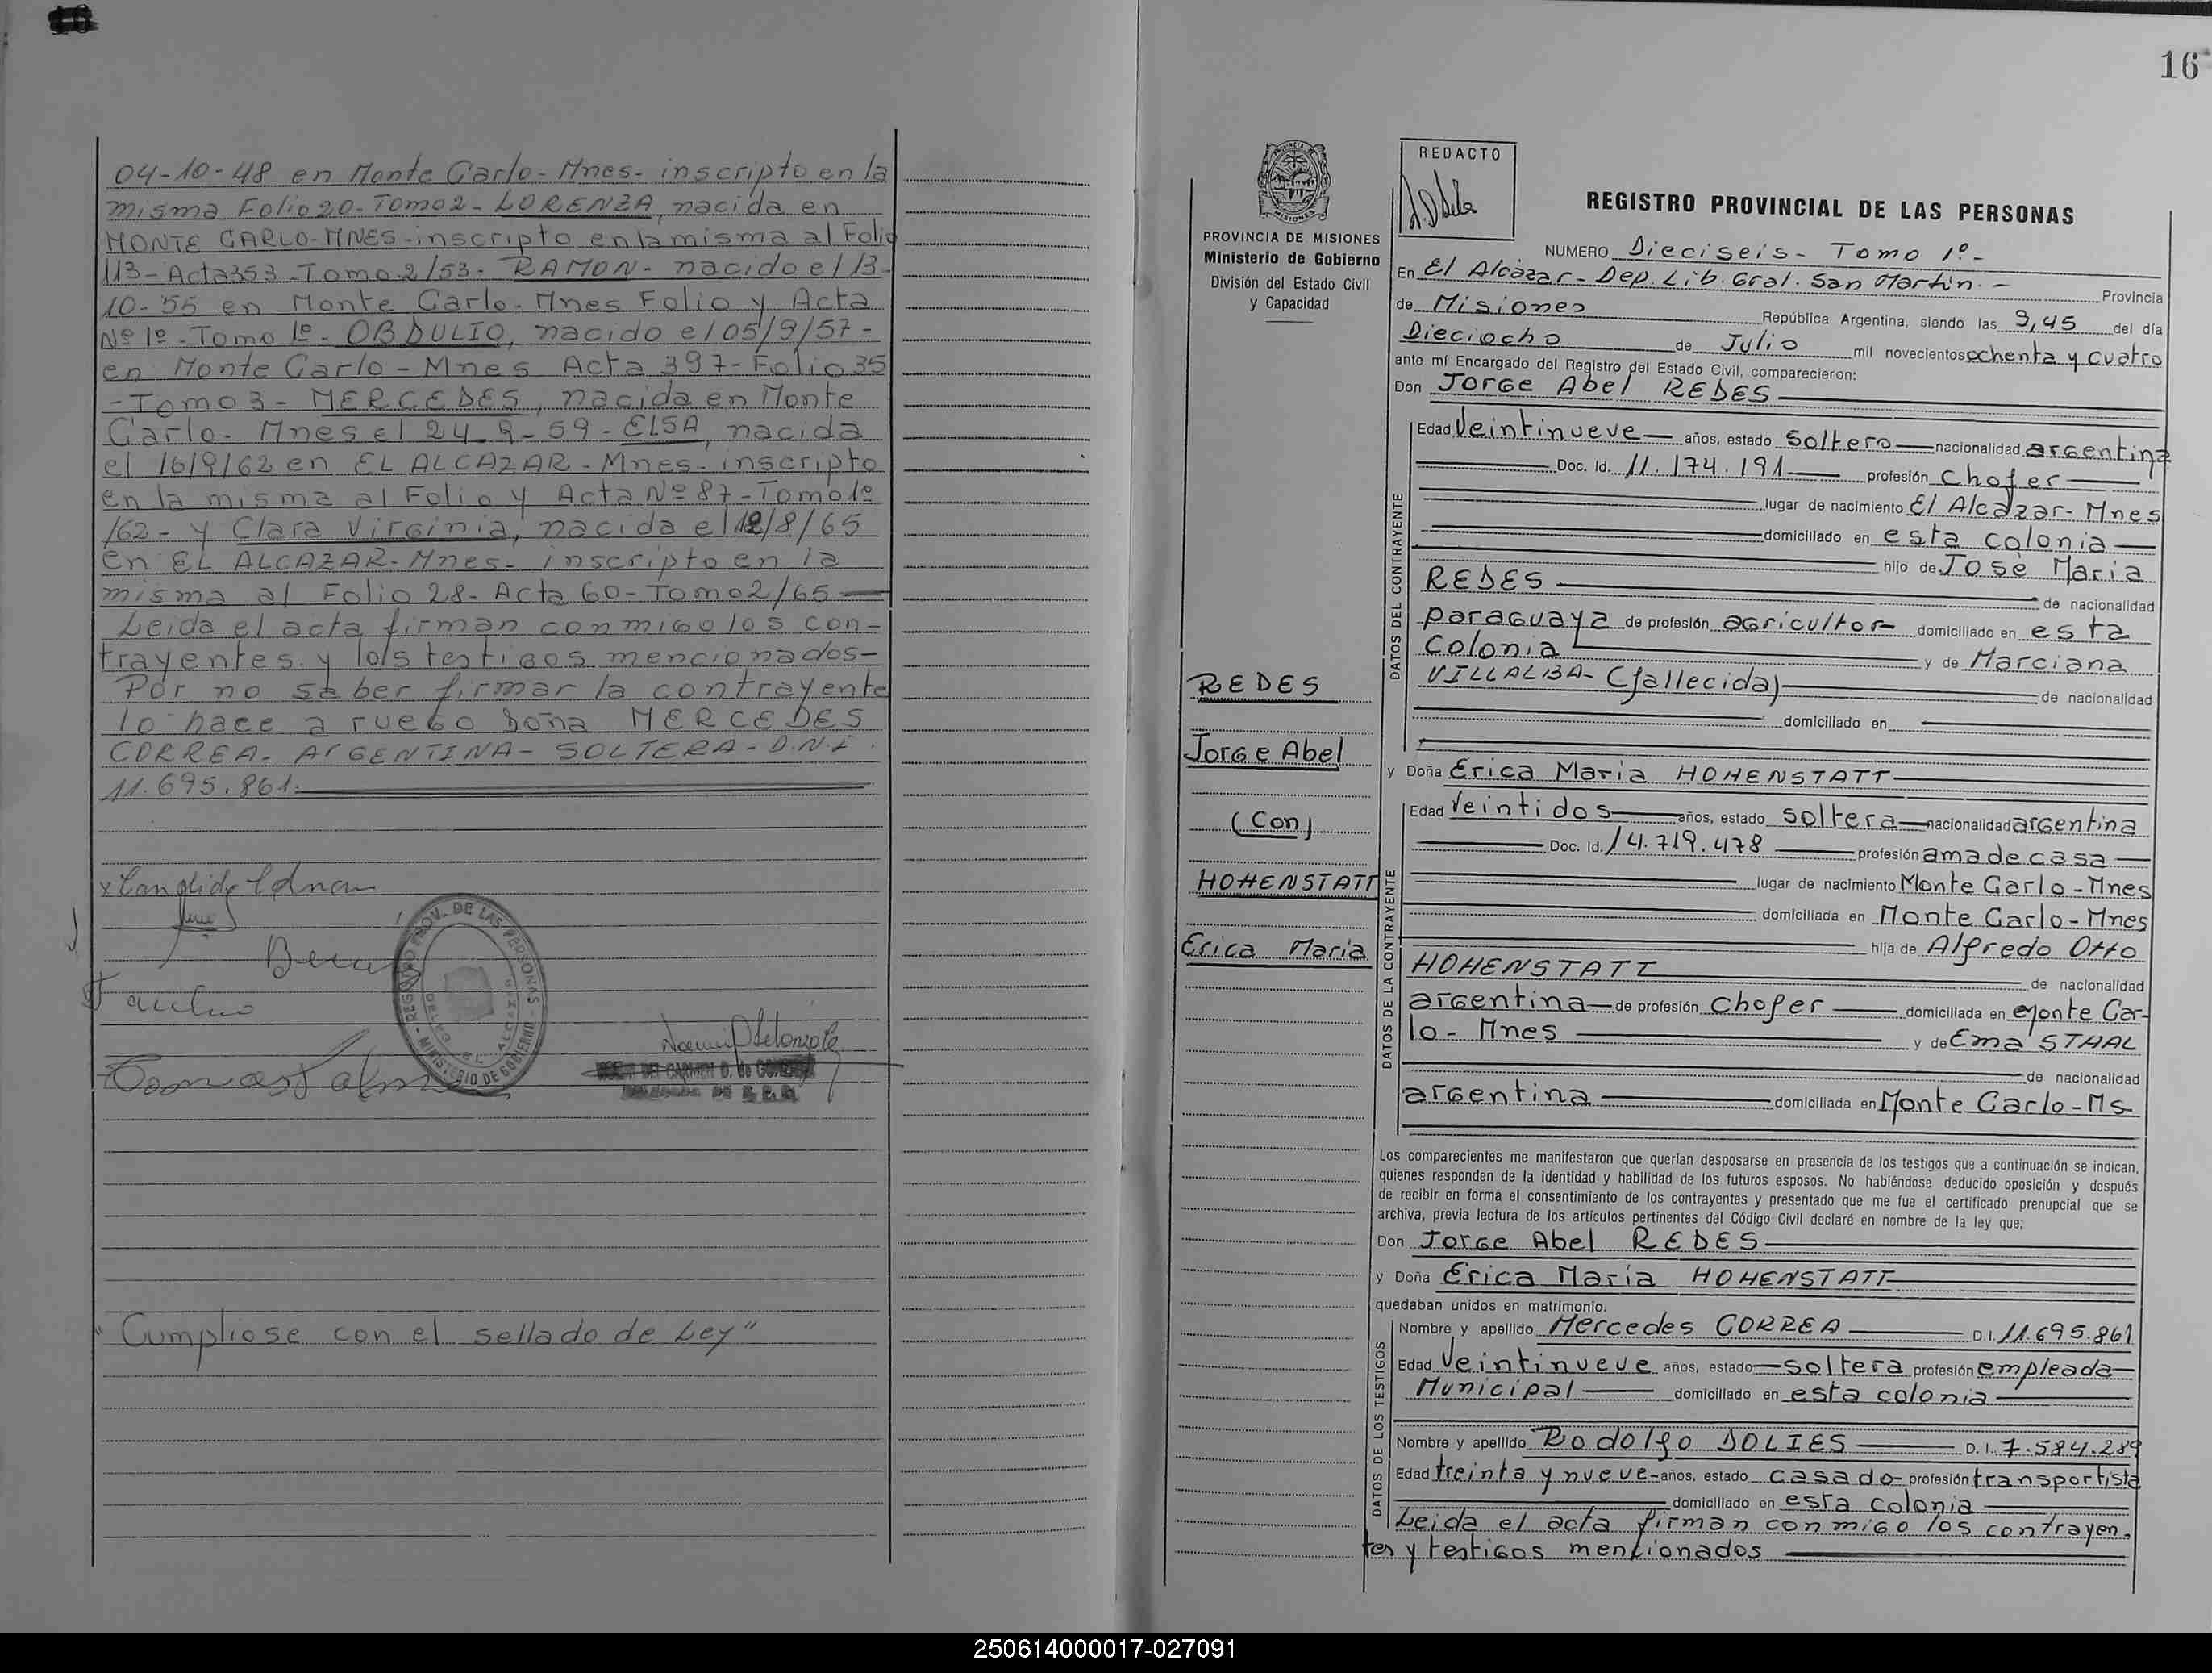 04-10-48 en Monte Carlo-Mnes-inscripto en la
misma Folio 20-Tomo 2-LORENZA, nacida en
MONTE CARLO-MNES-inscripto en la misma al Folio
113-Acta 353-Tomo 2/53-RAMON-nacido el 13-
10-55 en Monte Carlo-Mnes Folio y Acta
Nº 1º-Tomo 1º-OBDULIO, nacido el 05/9/57-
en Monte Carlo-Mnes Acta 397-Folio 35
-Tomo 3-MERCEDES, nacida en Monte
Carlo-Mnes el 24-9-59-ELSA, nacida
el 16/9/62 en EL ALCAZAR-Mnes-inscripto
en la misma al Folio y Acta Nº 87-Tomo 1º
/62-y Clara Virginia, nacida el 12/8/65
en EL ALCAZAR-Mnes-inscripto en la
misma al Folio 28-Acta 60-Tomo 2/65
Leida el acta firman conmigo los con-
trayentes y lols testigos mencionados-
Por no saber firmar la contrayente
lo hace a ruego Doña MERCEDES
CORREA-ArGENTINA-SOLTERA-D.N.I.
11.695.861.
"Cumpliose con el sellado de Ley"
16
REDACTO
PROVINCIA DE MISIONES
Ministerio de Gobierno
División del Estado Civil
y Capacidad
REGISTRO PROVINCIAL DE LAS PERSONAS
NUMERO Dieciseis-Tomo 1º-
En El Alcázar-Dep. Lib. Gral. San Martin.- Provincia
de Misiones República Argentina, siendo las 9,45 del día
Dieciocho de Julio mil novecientos ochenta y cuatro
ante mí Encargado del Registro del Estado Civil, comparecieron:
Don Jorge Abel REDES
DATOS DEL CONTRAYENTE
Edad Veintinueve años, estado soltero nacionalidad argentina
Doc. Id. 11.174.191 profesión chofer
lugar de nacimiento El Alcázar-Mnes
domiciliado en esta colonia
hijo de José Maria
REDES de nacionalidad
paraguaya de profesión agricultor domiciliado en esta
colonia y de Marciana
VILLALBA-(fallecida) de nacionalidad
domiciliado en
REDES
Jorge Abel
(Con)
HOHENSTATT
Erica Maria
y Doña Erica Maria HOHENSTATT
DATOS DE LA CONTRAYENTE
Edad Veintidos años, estado soltera nacionalidad argentina
Doc. Id. 14.719.478 profesión ama de casa
lugar de nacimiento Monte Carlo-Mnes
domiciliada en Monte Carlo-Mnes
hija de Alfredo Otto
HOHENSTATT de nacionalidad
argentina de profesión chofer domiciliada en Monte Car-
lo-Mnes y de Ema STAAL
de nacionalidad
argentina domiciliada en Monte Carlo-Ms
Los comparecientes me manifestaron que querían desposarse en presencia de los testigos que a continuación se indican,
quienes responden de la identidad y habilidad de los futuros esposos. No habiéndose deducido oposición y después
de recibir en forma el consentimiento de los contrayentes y presentado que me fue el certificado prenupcial que se
archiva, previa lectura de los artículos pertinentes del Código Civil declaré en nombre de la ley que;
Don Jorge Abel REDES
y Doña Erica Maria HOHENSTATT
quedaban unidos en matrimonio.
DATOS DE LOS TESTIGOS
Nombre y apellido Mercedes CORREA D.I. 11.695.861
Edad Veintinueve años, estado soltera profesión empleada
Municipal domiciliado en esta colonia
Nombre y apellido Rodolfo DOLIES D. I. 7.584.289
Edad treinta y nueve años, estado casado profesión transportista
domiciliado en esta colonia
Leida el acta firman conmigo los contrayen-
tes y testigos mencionados
250614000017-027091